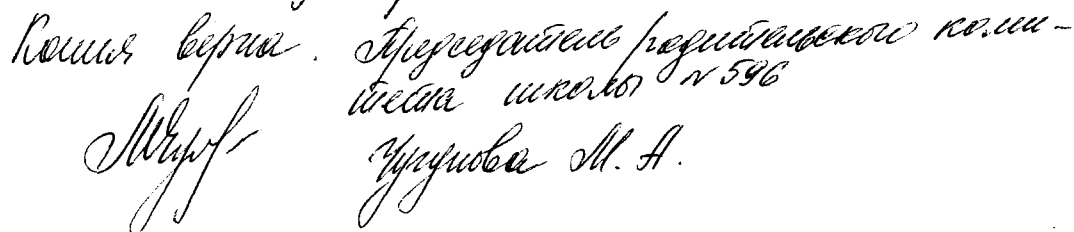 Копия верна. Председатель родительского коми-
тета школы № 596
Чугунова М. А.